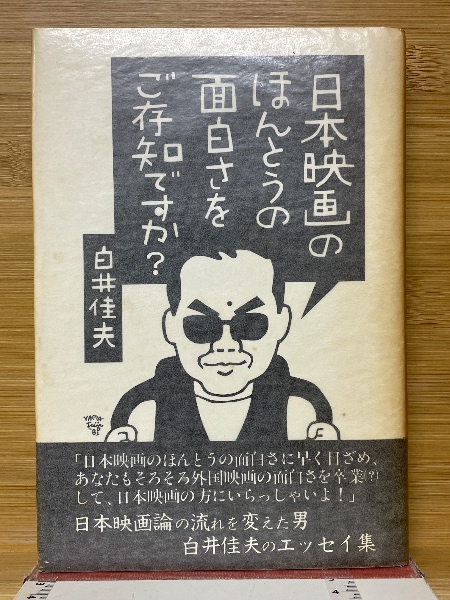 日本映画の
ほんとうの
面白さを
ご存知ですか?
白井佳夫
「日本映画のほんとうの面白さに早く目ざめ、
あなたもそろそろ外国映画の面白さを卒業(?)
して、日本映画の方にいらっしゃいよ!」
日本映画論の流れを変えた男
白井佳夫のエッセイ集